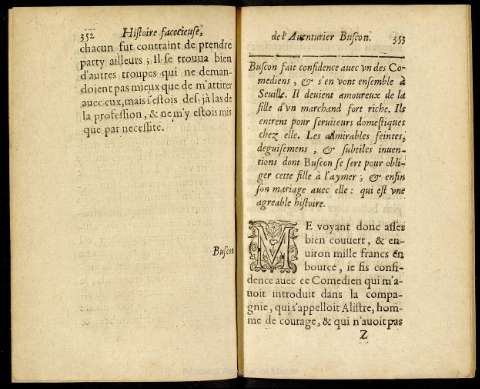 352 Histoire facecieuse,
chacun fut contraint de prendre
party ailleurs; Il se trouua bien
d'autres troupes qui ne deman-
doient pas mieux que de m'attirer
auec eux, mais i'estois des-ja las de
la profession, & ne m'y estois mis
que par necessite.
Buscon
de l'Auenturier Buscon. 353
Buscon fait confidence auec vn des Co-
mediens, & s'en vont ensemble à
Seuille. Il deuient amoureux de la
fille d'vn marchand fort riche. Ils
entrent pour seruiteurs domestiques
chez elle. Les admirables feintes,
deguisemens, & subtiles inuen-
tions dont Buscon se sert pour obli-
ger cette fille à l'aymer; & enfin
son mariage auec elle: qui est vne
agreable histoire.
ME voyant donc assez
bien couuert, & en-
uiron mille francs en
bource, ie fis confi-
dence auec ce Comedien qui m'a-
uoit introduit dans la compa-
gnie, qui s'appelloit Alistre, hom-
me de courage, & qui n'auoit pas
Z